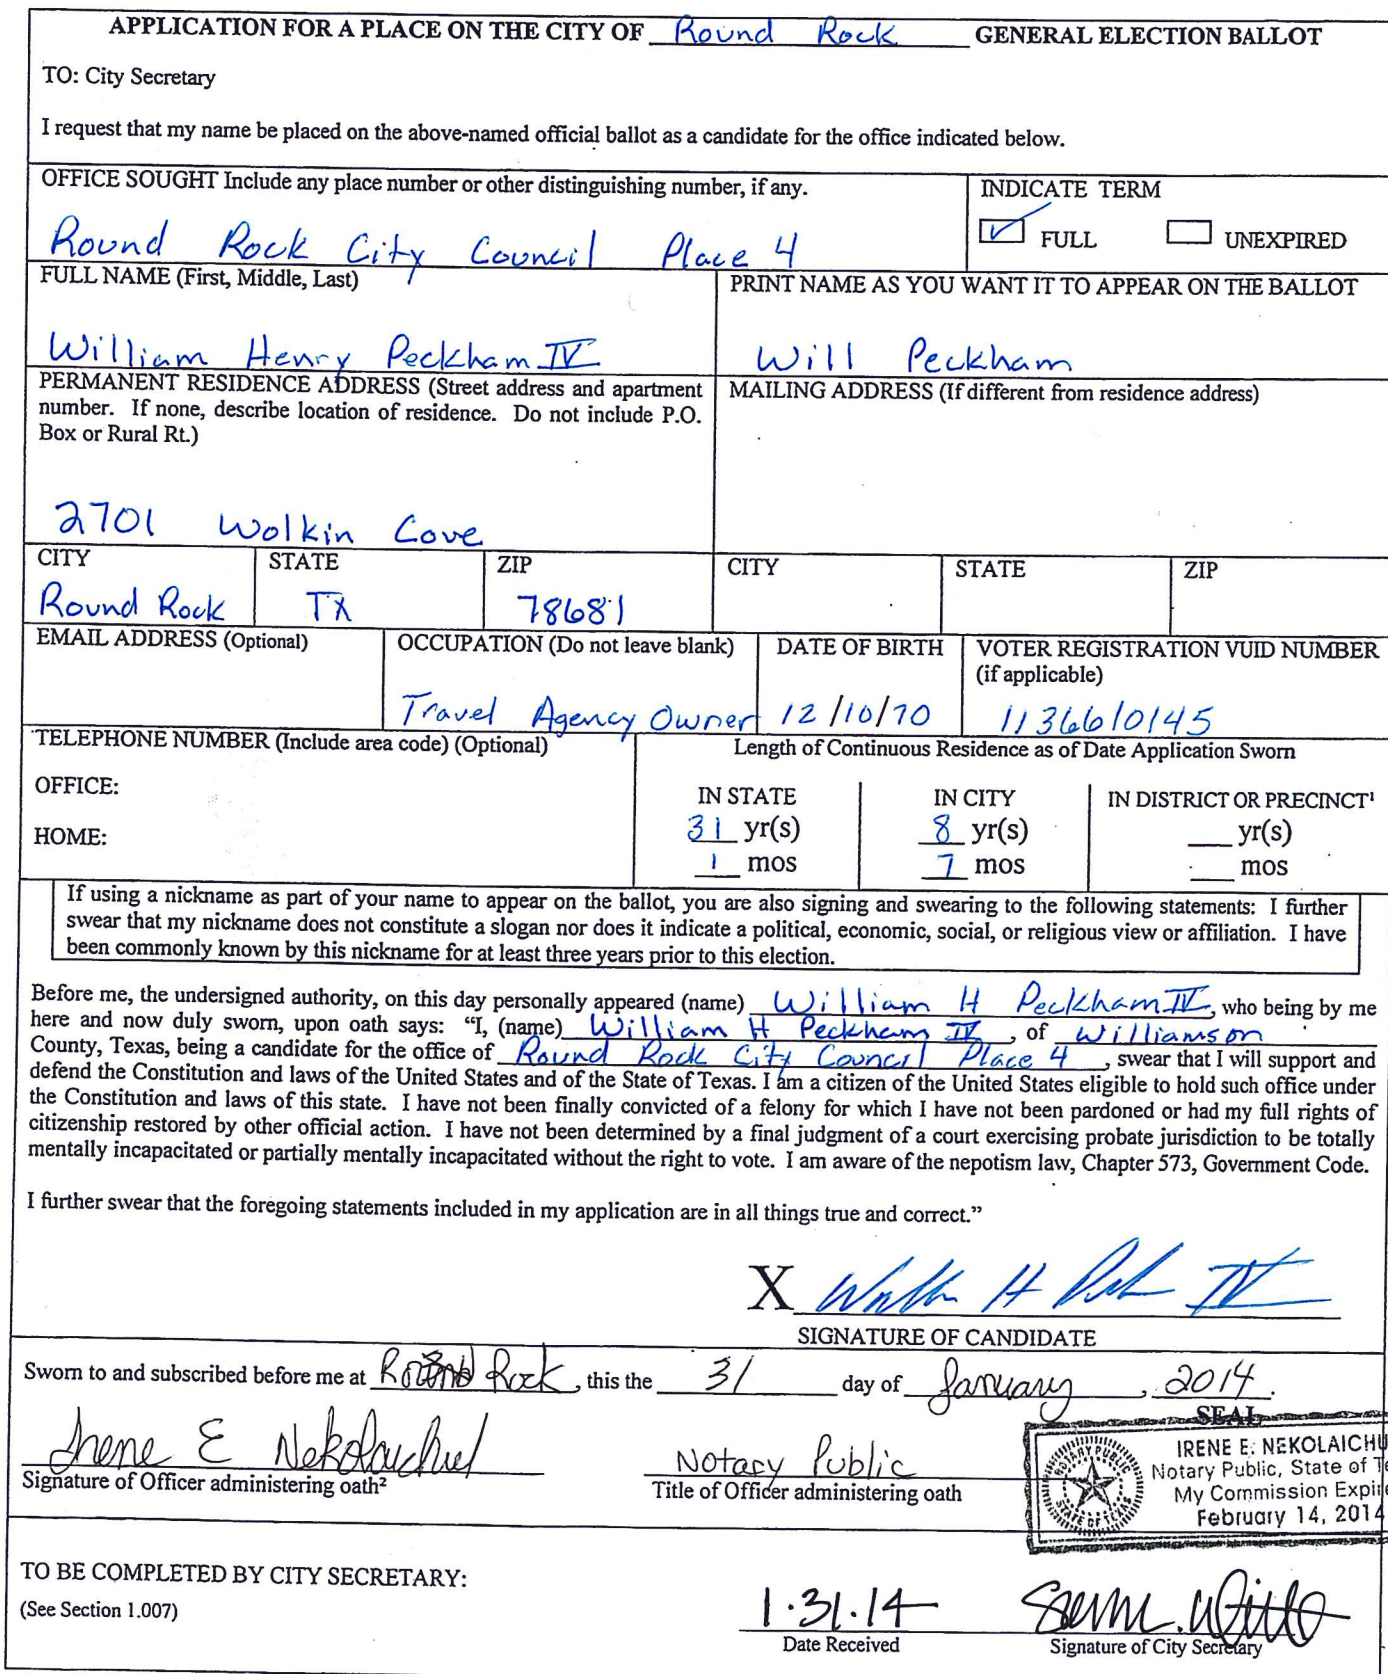 APPLICATION FOR A PLACE ON THE CITY OF Round Rock GENERAL ELECTION BALLOT
TO: City Secretary
I request that my name be placed on the above-named official ballot as a candidate for the office indicated below.
OFFICE SOUGHT Include any place number or other distinguishing number, if any.
Round Rock City Council Place 4
INDICATE TERM
FULL UNEXPIRED
FULL NAME (First, Middle, Last)
William Henry Peckham IV
PRINT NAME AS YOU WANT IT TO APPEAR ON THE BALLOT
Will Peckham
PERMANENT RESIDENCE ADDRESS (Street address and apartment
number. If none, describe location of residence. Do not include P.O.
Box or Rural Rt.)
2701 Wolkin Cove
MAILING ADDRESS (If different from residence address)
CITY STATE ZIP CITY STATE ZIP
Round Rock TX 78681
EMAIL ADDRESS (Optional)
OCCUPATION (Do not leave blank)
Travel Agency Owner
DATE OF BIRTH
12/10/70
VOTER REGISTRATION VUID NUMBER
(if applicable)
1136610145
TELEPHONE NUMBER (Include area code) (Optional)
OFFICE:
HOME:
Length of Continuous Residence as of Date Application Sworn
IN STATE IN CITY IN DISTRICT OR PRECINCT¹
31 yr(s) 8 yr(s) yr(s)
1 mos 7 mos mos
If using a nickname as part of your name to appear on the ballot, you are also signing and swearing to the following statements: I further
swear that my nickname does not constitute a slogan nor does it indicate a political, economic, social, or religious view or affiliation. I have
been commonly known by this nickname for at least three years prior to this election.
Before me, the undersigned authority, on this day personally appeared (name) William H Peckham IV, who being by me
here and now duly sworn, upon oath says: “I, (name) William H Peckham IV, of Williamson
County, Texas, being a candidate for the office of Round Rock City Council Place 4, swear that I will support and
defend the Constitution and laws of the United States and of the State of Texas. I am a citizen of the United States eligible to hold such office under
the Constitution and laws of this state. I have not been finally convicted of a felony for which I have not been pardoned or had my full rights of
citizenship restored by other official action. I have not been determined by a final judgment of a court exercising probate jurisdiction to be totally
mentally incapacitated or partially mentally incapacitated without the right to vote. I am aware of the nepotism law, Chapter 573, Government Code.
I further swear that the foregoing statements included in my application are in all things true and correct.”
X
SIGNATURE OF CANDIDATE
Sworn to and subscribed before me at Round Rock, this the 31 day of January, 2014.
SEAL
Irene E Nekolaichuk
Signature of Officer administering oath²
Notary Public
Title of Officer administering oath
NOTARY PUBLIC
STATE OF TEXAS
IRENE E. NEKOLAICHU
Notary Public, State of Te
My Commission Expire
February 14, 2014
TO BE COMPLETED BY CITY SECRETARY:
(See Section 1.007)
1.31.14
Date Received
Signature of City Secretary